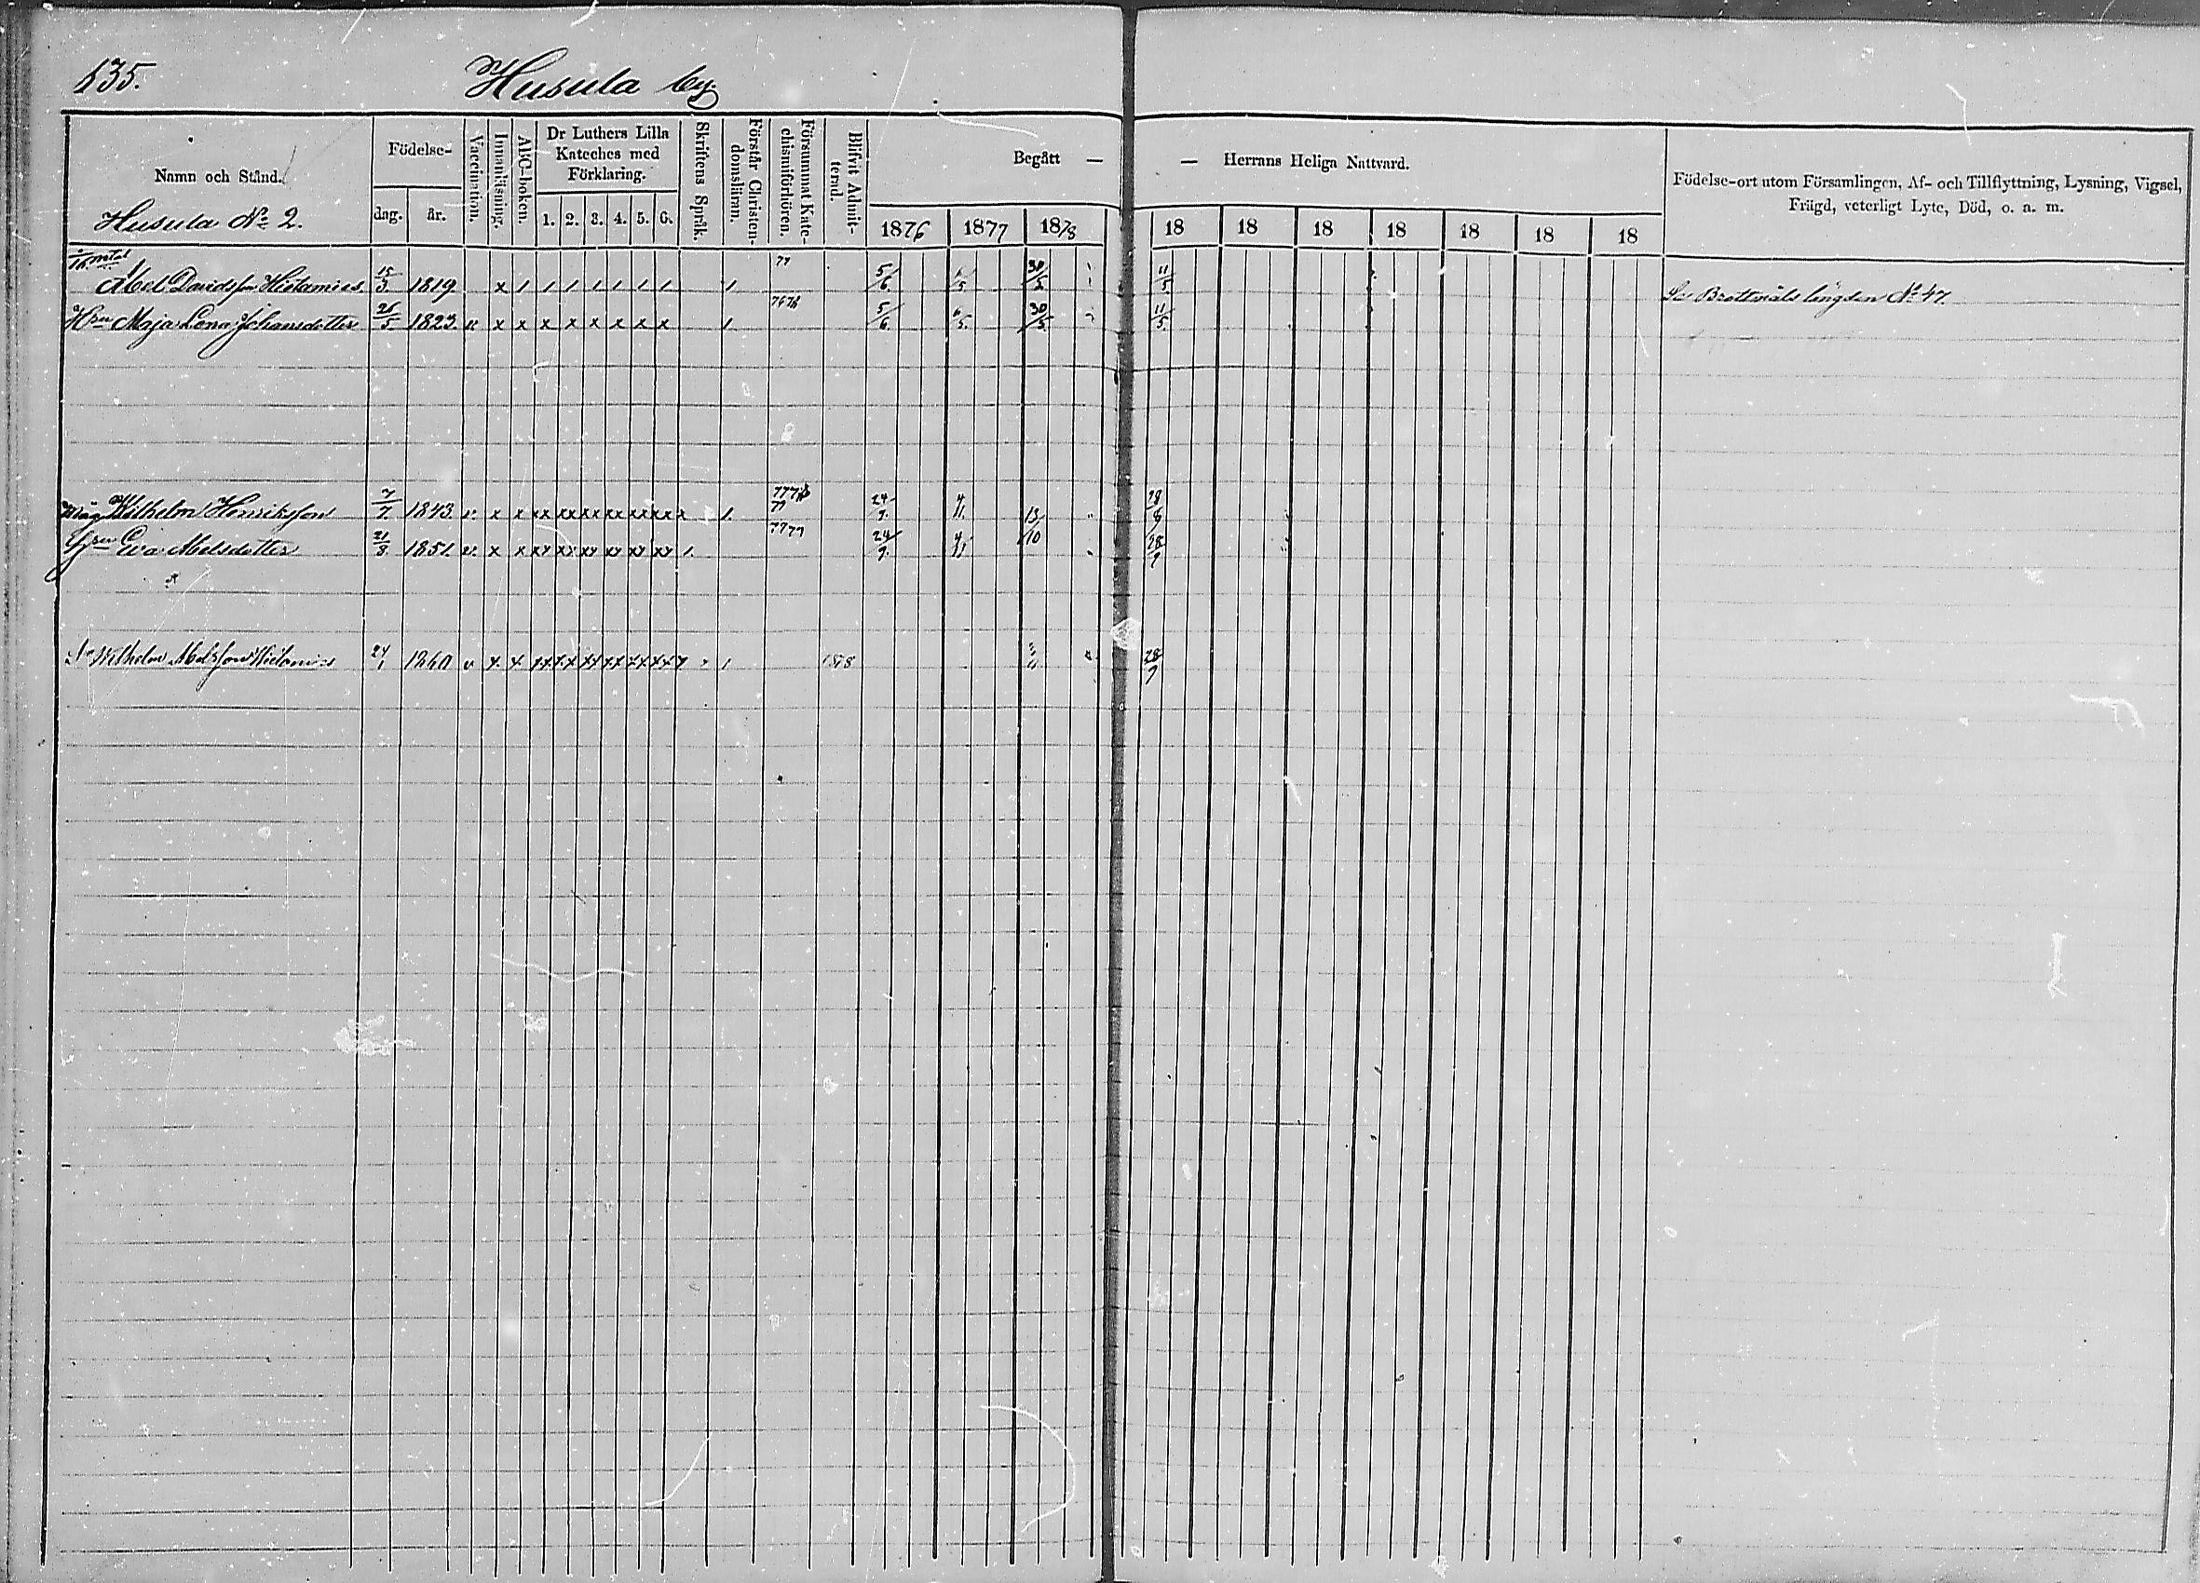 135.
Husula by.
Namn och Stånd.
Födelse-
dag.
år.
Vaccination.
Innanläsning.
ABC-boken.
Dr Luthers Lilla
Kateches med
Förklaring.
1. 2. 3. 4. 5. 6.
Skriftens Språk.
Förstår Christen-
domsläran.
Försummat Kate-
chismiförhören.
Blifvit Admit-
terad.
Begått — — Herrans Heliga Nattvard.
1876 1877 1878 18 18 18 18 18 18 18
Födelse-ort utom Församlingen, Af- och Tillflyttning, Lysning, Vigsel,
Frägd, veterligt Lyte, Död, o. a. m.
Husula No 2.
Abel Davidsson Hietamies 15/3 1819 x 1 1 1 1 1 1 1 1 77 5/6 6/5 30/5 11/5 Se Brottmåls längden No 47.
Hru Maja Lena Johansdotter 26/5 1823 v. x x x x x x x x 1. 7678 5/6 6/5 30/5 11/5
Måg Wilhelm Henriksson 7/7 1843 v. x x xx xx xx xx xx xx x 1. 24/9 4/11 13/10 28/9
Hru Eva Abelsdotter 21/8 1851 v. x x xx xx xx xx xx xx 1. 7779 24/9 4/11 28/9
Sn Wilhelm Abelsson Hietamies 24/1 1860 v x x xx xx xx xx xx xx 1 1878 28/9